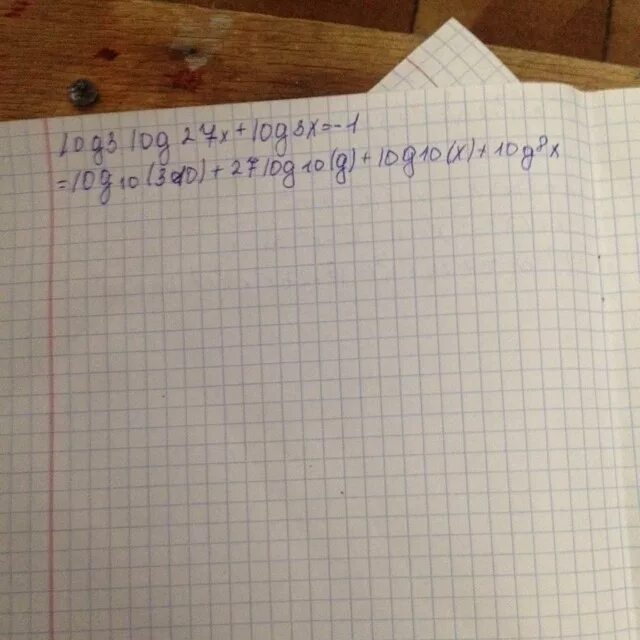 log3 log 27x + log 3x = -1
= log10 (310) + 27 log10 (g) + log10 (x) + log⁸x